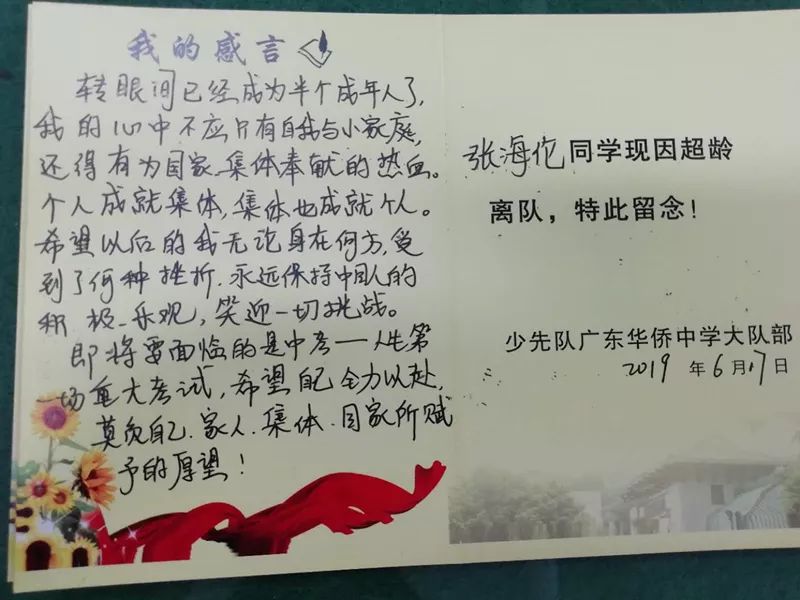 我的感言
转眼间已经成为半个成年人了,
我的心中不应只有自我与小家庭,
还得有为国家、集体奉献的热血。
个人成就集体,集体也成就个人。
希望以后的我无论身在何方,受
到了何种挫折,永远保持中国人的
积极、乐观,笑迎一切挑战。
即将要面临的是中考——人生第
一场重大考试,希望自己全力以赴,
莫负自己、家人、集体、国家所赋
予的厚望!
张海伦同学现因超龄
离队,特此留念!
少先队广东华侨中学大队部
2019 年 6 月 17 日